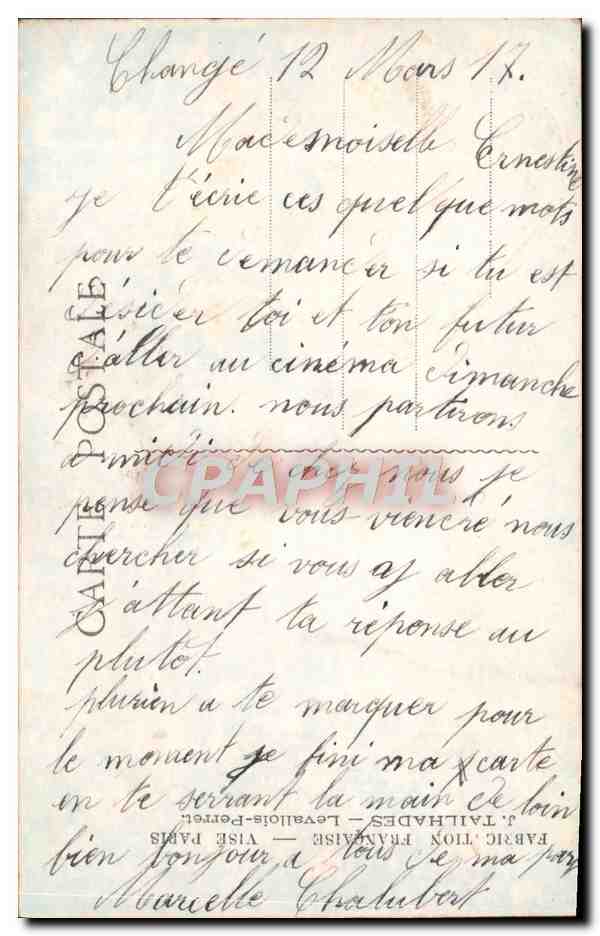 Changé 12 Mars 17.
Mademoiselle Ernestine
je t'écrie ces quel que mots
pour te demander si tu est
désider toi et ton futur
d'aller au cinéma dimanche
prochain. nous partirons
a midi de cher nous je
pense que vous viendré nous
chercher si vous aj aller
j'attant ta réponse au
plutot.
plurien a te marquer pour
le moment je fini ma carte
en te serrant la main de loin
bien bonjour a tous de ma par
Marcelle Chalubert
CARTE POSTALE
CPAPHIL
FABRICATION FRANÇAISE — VISÉ PARIS
J. TAILHADES — Levallois-Perret